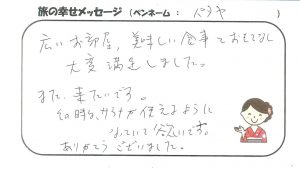 旅の幸せメッセージ (ペンネーム : バラヤ )
広いお部屋、美味しい食事とおもてなし
大変満足しました。
また、来たいです。
その時は、サウナが使えるように
なっていて欲しいです。
ありがとうございました。